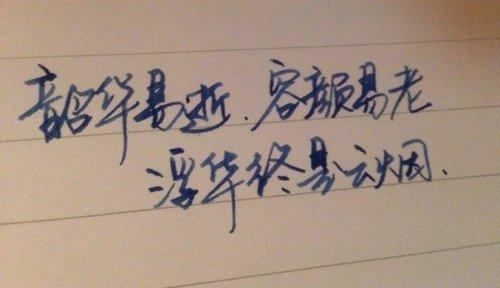 韶华易逝.容颜易老
浮华终是云烟.